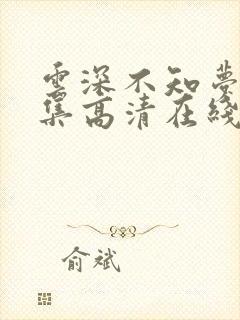 雲深不知夢
集高清在綫
俞斌